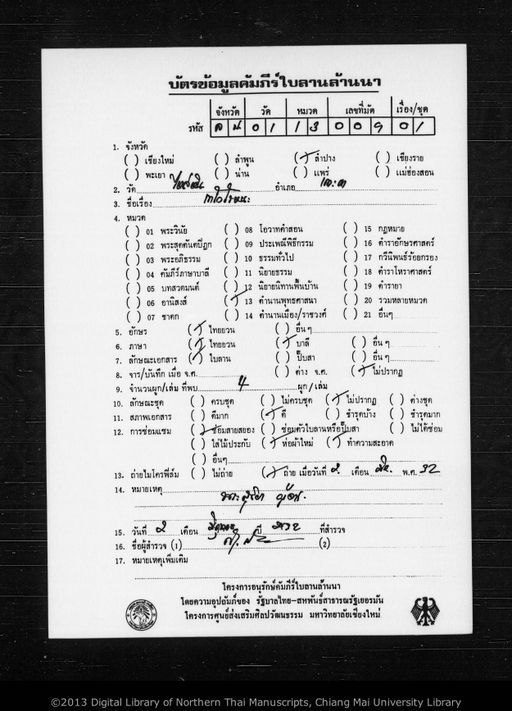 บัตรข้อมูลคัมภีร์ใบลานล้านนา
จังหวัด วัด หมวด เลขที่มัด เรื่อง/ชุด
รหัส ล ป 0 1 1 3 0 0 9 0 1
1. จังหวัด
( ) เชียงใหม่ ( ) ลำพูน (/) ลำปาง ( ) เชียงราย
( ) พะเยา ( ) น่าน ( ) แพร่ ( ) แม่ฮ่องสอน
2. วัด อำเภอ
3. ชื่อเรื่อง
4. หมวด
( ) 01 พระวินัย ( ) 08 โอวาทคำสอน ( ) 15 กฎหมาย
( ) 02 พระสุตตันตปิฎก ( ) 09 ประเพณีพิธีกรรม ( ) 16 ตำราอักษรศาสตร์
( ) 03 พระอภิธรรม ( ) 10 ธรรมทั่วไป ( ) 17 กวีนิพนธ์ร้อยกรอง
( ) 04 คัมภีร์ภาษาบาลี ( ) 11 นิยายธรรม ( ) 18 ตำราโหราศาสตร์
( ) 05 บทสวดมนต์ ( ) 12 นิยายนิทานพื้นบ้าน ( ) 19 ตำรายา
( ) 06 อานิสงส์ (/) 13 ตำนานพุทธศาสนา ( ) 20 รวมหลายหมวด
( ) 07 ชาดก ( ) 14 ตำนานเมือง/ราชวงศ์ ( ) 21 อื่นๆ
5. อักษร (/) ไทยยวน ( ) อื่นๆ
6. ภาษา (/) ไทยยวน (/) บาลี ( ) อื่นๆ
7. ลักษณะเอกสาร (/) ใบลาน ( ) ปั๊บสา ( ) อื่นๆ
8. จาร/บันทึก เมื่อ จ.ศ. ( ) ต่าง จ.ศ. (/) ไม่ปรากฏ
9. จำนวนผูก/เล่ม ที่พบ 4 ผูก/เล่ม
10. ลักษณะชุด ( ) ครบชุด ( ) ไม่ครบชุด (/) ไม่ปรากฏ ( ) ต่างชุด
11. สภาพเอกสาร ( ) ดีมาก (/) ดี ( ) ชำรุดบ้าง ( ) ชำรุดมาก
12. การซ่อมแซม (/) ซ่อมสายสยอง ( ) ซ่อมตัวใบลานหรือปั๊บสา ( ) ไม่ได้ซ่อม
( ) ใส่ไม้ประกับ (/) ห่อผ้าใหม่ (/) ทำความสะอาด
( ) อื่นๆ
13. ถ่ายไมโครฟิล์ม ( ) ไม่ถ่าย (/) ถ่าย เมื่อวันที่ 2 เดือน พ.ศ. 32
14. หมายเหตุ
15. วันที่ 2 เดือน ปี ที่สำรวจ
16. ชื่อผู้สำรวจ (1) (2)
17. หมายเหตุเพิ่มเติม
โครงการอนุรักษ์คัมภีร์ใบลานล้านนา
โดยความอุปถัมภ์ของ รัฐบาลไทย-สหพันธ์สาธารณรัฐเยอรมัน
โครงการศูนย์ส่งเสริมศิลปวัฒนธรรม มหาวิทยาลัยเชียงใหม่
©2013 Digital Library of Northern Thai Manuscripts, Chiang Mai University Library